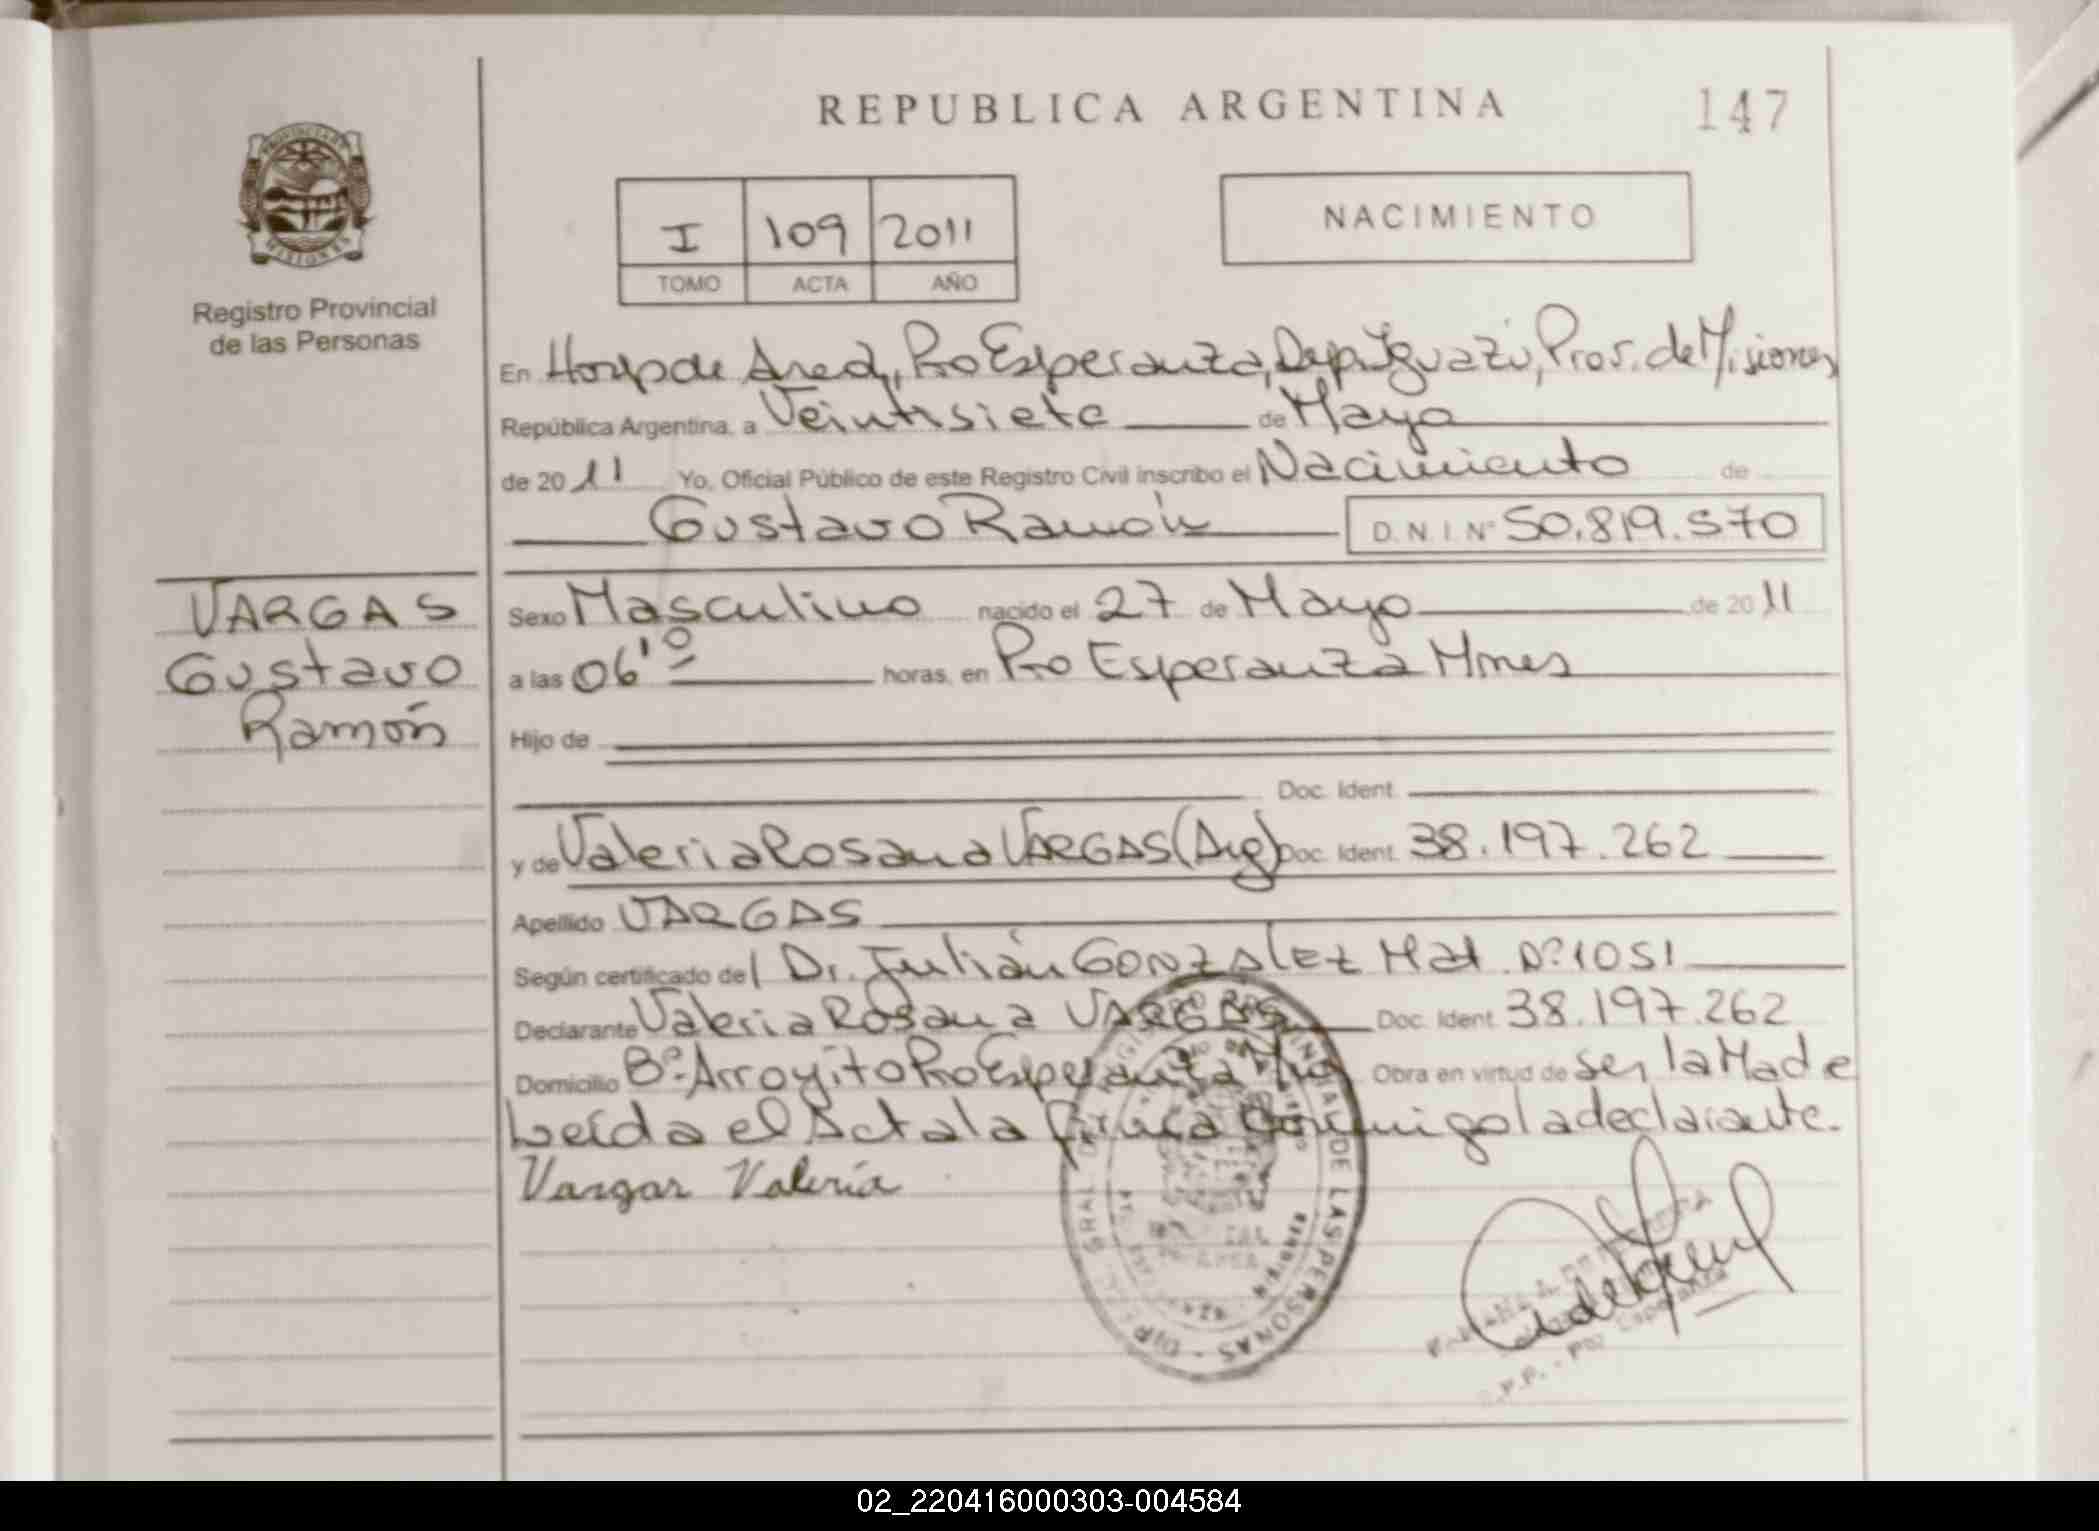 REPUBLICA ARGENTINA
147
I 109 2011
TOMO ACTA AÑO
NACIMIENTO
Registro Provincial
de las Personas
En Hosp de Area, Pto Esperanza, Dep. Iguazú, Prov. de Misiones
República Argentina, a Veintisiete de Mayo
de 2011 Yo, Oficial Público de este Registro Civil inscribo el Nacimiento de
Gustavo Ramón D.N.I. Nº 50.819.570
VARGAS
Gustavo
Ramón
Sexo Masculino nacido el 27 de Mayo de 2011
a las 06'10 horas, en Pto Esperanza Mnes
Hijo de
Doc. Ident.
y de Valeria Rosana VARGAS (Arg) Doc. Ident. 38.197.262
Apellido VARGAS
Según certificado del Dr. Julián GONZALEZ Mat. Nº 1051
Declarante Valeria Rosana VARGAS Doc. Ident. 38.197.262
Domicilio Bº Arroyito Pto Esperanza Obra en virtud de Ser la Made
Leída el Acta la firma conmigo la declarante.
Vargas Valeria
02_220416000303-004584